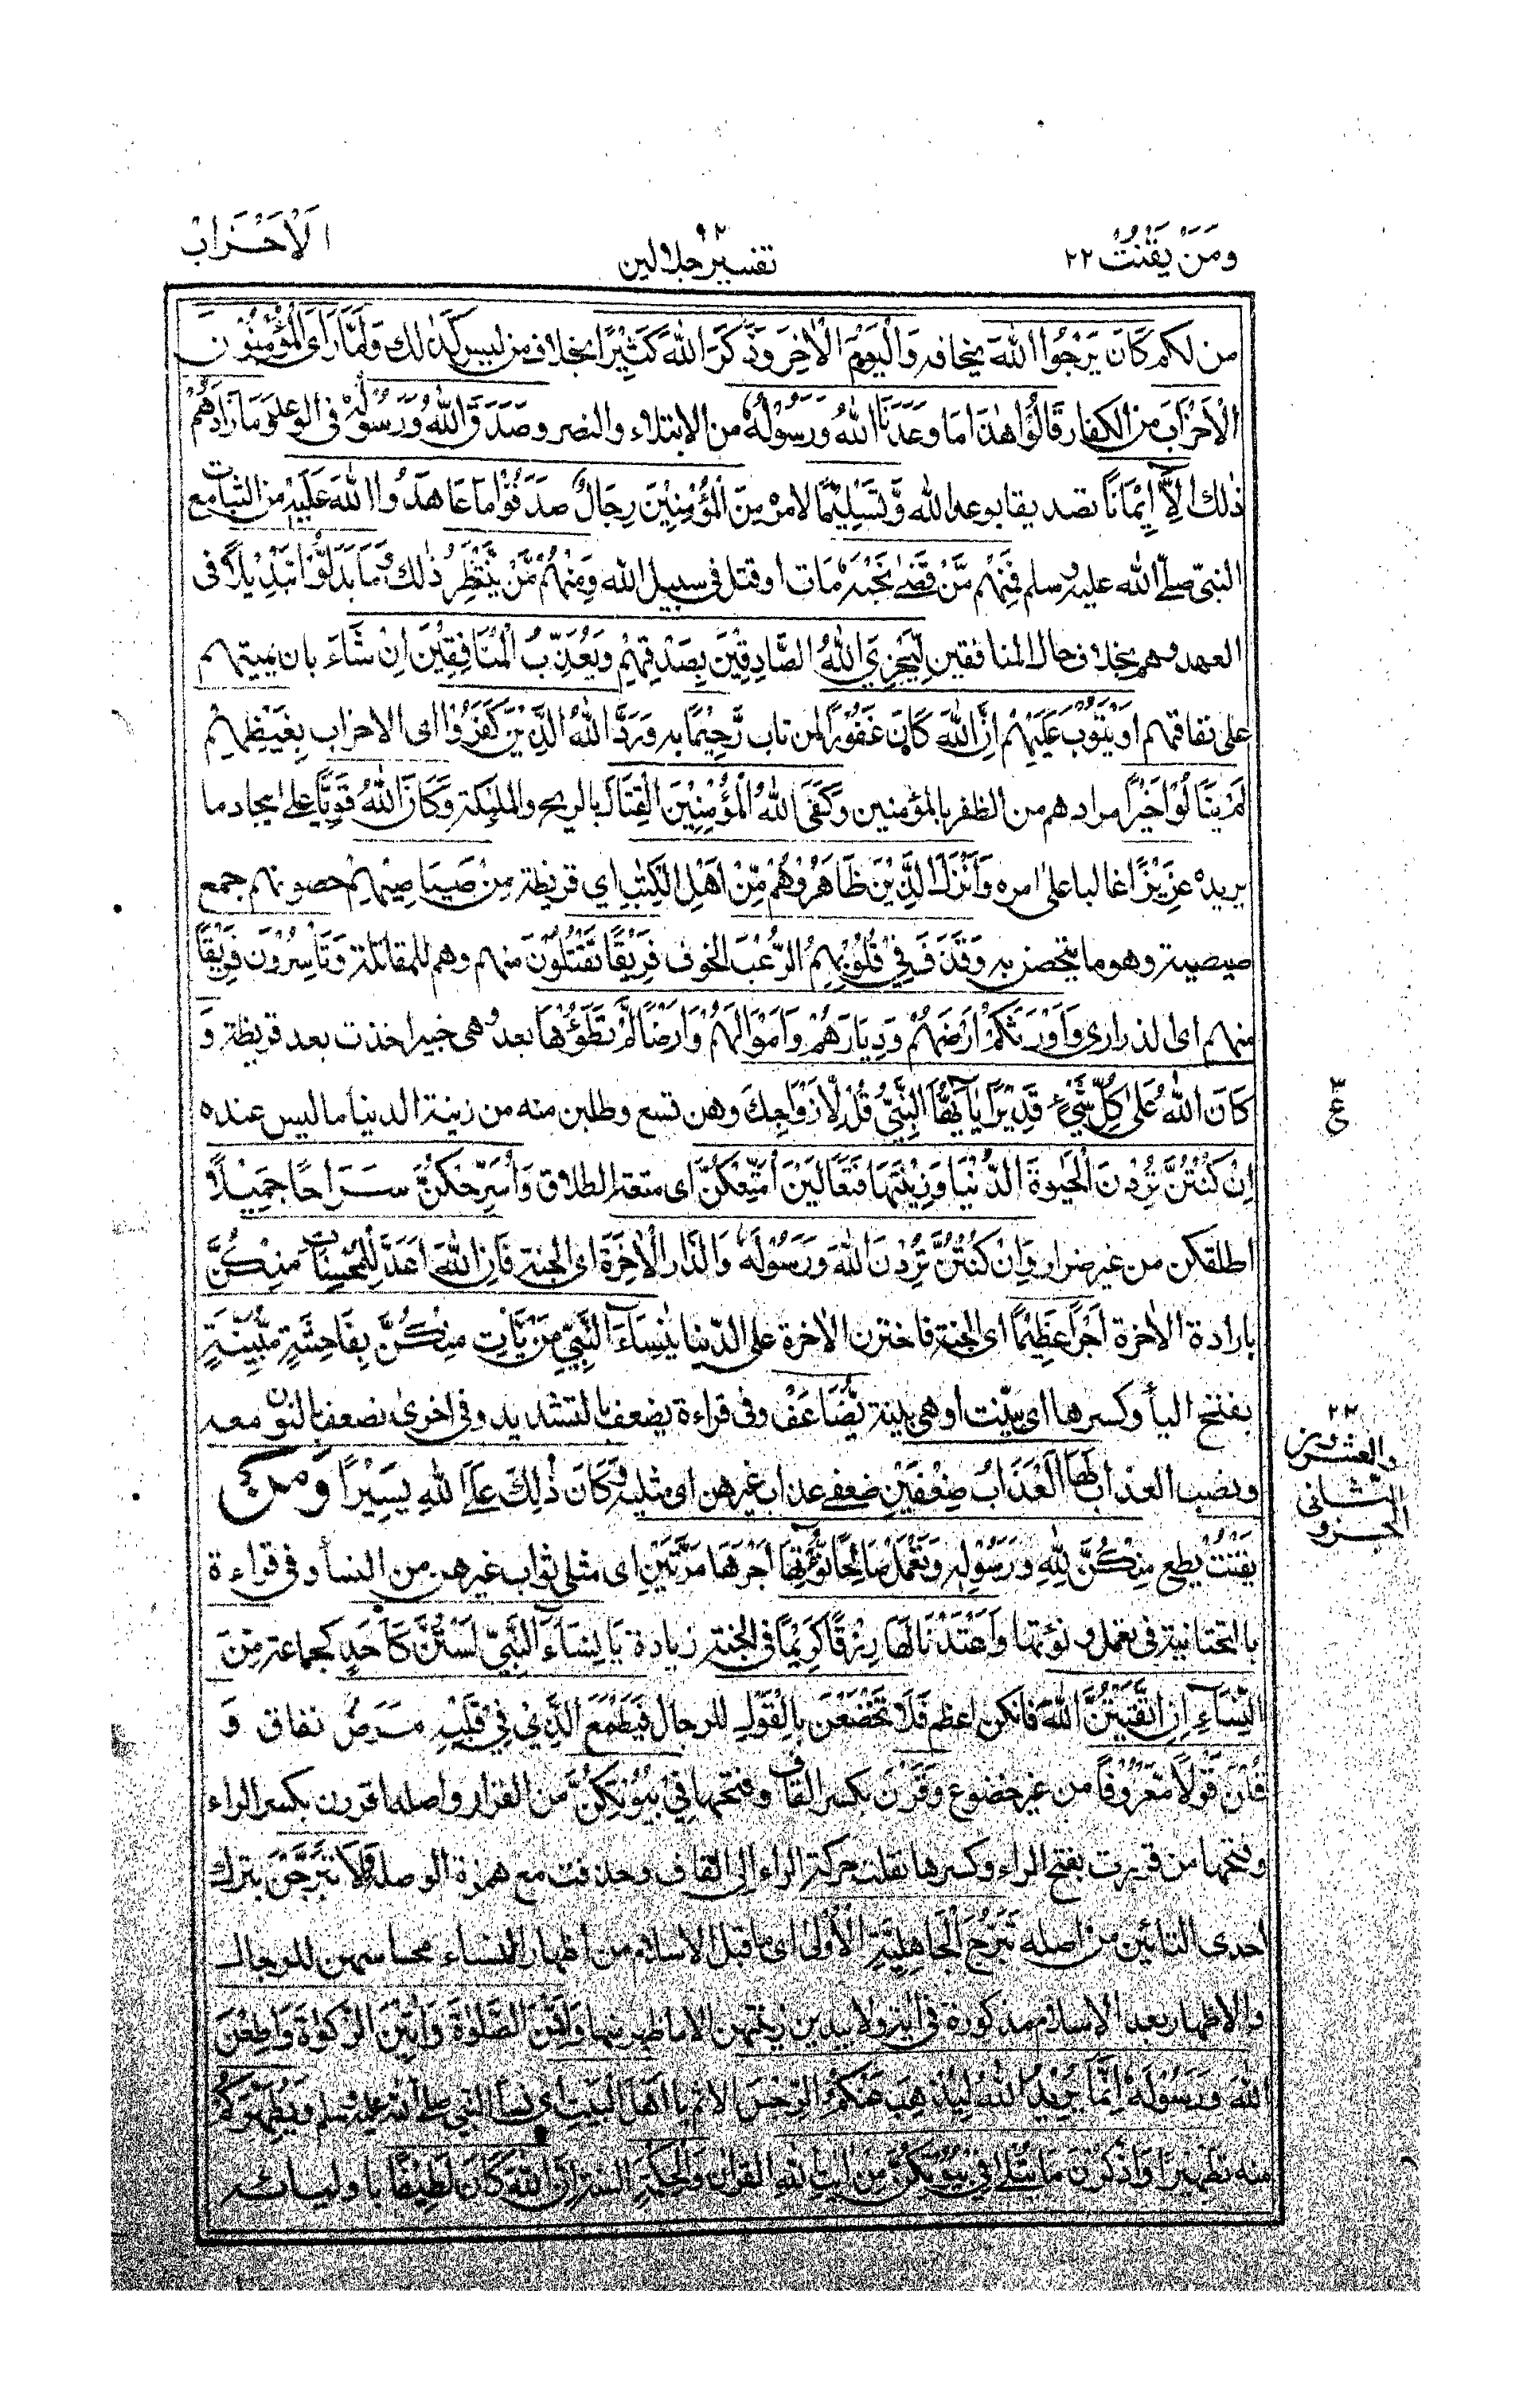 وَمَنْ يَقْنُتْ ٢٢
٩٢
تفسیر جلالین
الْاَحْزَاب
من لكم كَانَ يَرْجُوا اللهَ يخافه وَالْيَوْمَ الْاٰخِرَ وَذَكَرَ اللهَ كَثِيْرًا بخلاف من ليس كذلك وَلَمَّا رَاَى الْمُؤْمِنُوْنَ
الْاَحْزَابَ من الكفار قَالُوْا هٰذَا مَا وَعَدَنَا اللهُ وَرَسُوْلُهٗ من الابتلاء والنصر وَصَدَقَ اللهُ وَرَسُوْلُهٗ فى الوعد وَمَا زَادَهُمْ
ذلك اِلَّا اِيْمَانًا تصديقا بوعد الله وَّتَسْلِيْمًا لامره مِنَ الْمُؤْمِنِيْنَ رِجَالٌ صَدَقُوْا مَا عَاهَدُوا اللهَ عَلَيْهِ من الثبات مع
النبيّ صلّے الله عليه وسلم فَمِنْهُمْ مَّنْ قَضٰى نَحْبَهٗ مات او قتل فى سبيل الله وَمِنْهُمْ مَّنْ يَّنْتَظِرُ ذلك وَمَا بَدَّلُوْا تَبْدِيْلًا فى
العهد وهم بخلاف حال المنافقين لِيَجْزِيَ اللهُ الصَّادِقِيْنَ بِصِدْقِهِمْ وَيُعَذِّبَ الْمُنَافِقِيْنَ اِنْ شَاءَ بان يميتهم
على نفاقهم اَوْ يَتُوْبَ عَلَيْهِمْ اِنَّ اللهَ كَانَ غَفُوْرًا لمن تاب رَّحِيْمًا به وَرَدَّ اللهُ الَّذِيْنَ كَفَرُوْا اى الاحزاب بِغَيْظِهِمْ
لَمْ يَنَالُوْا خَيْرًا مرادهم من الظفر بالمؤمنين وَكَفَى اللهُ الْمُؤْمِنِيْنَ الْقِتَالَ بالريح والملئكة وَكَانَ اللهُ قَوِيًّا على ايجاد ما
يريده عَزِيْزًا غالبا على امره وَاَنْزَلَ الَّذِيْنَ ظَاهَرُوْهُمْ مِّنْ اَهْلِ الْكِتٰبِ اي قريظة مِنْ صَيَاصِيْهِمْ حصونهم جمع
صيصية وهو ما يتحصن به وَقَذَفَ فِيْ قُلُوْبِهِمُ الرُّعْبَ الخوف فَرِيْقًا تَقْتُلُوْنَ منهم وهم المقاتلة وَتَاْسِرُوْنَ فَرِيْقًا
منهم اى الذراري وَاَوْرَثَكُمْ اَرْضَهُمْ وَدِيَارَهُمْ وَاَمْوَالَهُمْ وَاَرْضًا لَّمْ تَطَؤُهَا بعد وهى خيبر اخذت بعد قريظة وَ
كَانَ اللهُ عَلٰى كُلِّ شَيْءٍ قَدِيْرًا يٰاَيُّهَا النَّبِيُّ قُلْ لِّاَزْوَاجِكَ وهن تسع وطلبن منه من زينة الدنيا ما ليس عنده
اِنْ كُنْتُنَّ تُرِدْنَ الْحَيٰوةَ الدُّنْيَا وَزِيْنَتَهَا فَتَعَالَيْنَ اُمَتِّعْكُنَّ اى متعة الطلاق وَاُسَرِّحْكُنَّ سَرَاحًا جَمِيْلًا
اطلقكن من غير ضرار وَاِنْ كُنْتُنَّ تُرِدْنَ اللهَ وَرَسُوْلَهٗ وَالدَّارَ الْاٰخِرَةَ اى الجنة فَاِنَّ اللهَ اَعَدَّ لِلْمُحْسِنَاتِ مِنْكُنَّ
بارادة الاخرة اَجْرًا عَظِيْمًا اى الجنة فاخترن الاخرة على الدنيا يٰنِسَاءَ النَّبِيِّ مَنْ يَّاْتِ مِنْكُنَّ بِفَاحِشَةٍ مُّبَيِّنَةٍ
بفتح اليأ وكسرها اى بيّنت او هى بينة يُّضَاعَفْ وفى قراءة يضعف بالتشديد وفى اخرى نضعف بالنون معه
ونصب العذاب لَهَا الْعَذَابُ ضِعْفَيْنِ ضعفے عذاب غيرهن اى مثليه وَكَانَ ذٰلِكَ عَلَى اللهِ يَسِيْرًا وَمَنْ
يَّقْنُتْ يطع مِنْكُنَّ لِلّٰهِ وَرَسُوْلِهٖ وَتَعْمَلْ صَالِحًا نُّؤْتِهَا اَجْرَهَا مَرَّتَيْنِ اى مثلى ثواب غيرهن من النسأ وفى قراءة
بالتحتانية فى تعمل ونؤتها وَاَعْتَدْنَا لَهَا رِزْقًا كَرِيْمًا فى الجنة زيادة يَا نِسَاءَ النَّبِيِّ لَسْتُنَّ كَاَحَدٍ كجماعة مِّنَ
النِّسَاءِ اِنِ اتَّقَيْتُنَّ اللهَ فانكن اعظم فَلَا تَخْضَعْنَ بِالْقَوْلِ للرجال فَيَطْمَعَ الَّذِيْ فِيْ قَلْبِهٖ مَرَضٌ نفاق وَ
قُلْنَ قَوْلًا مَّعْرُوْفًا من غير خضوع وَقَرْنَ بكسر القاف وفتحها فِيْ بُيُوْتِكُنَّ من القرار واصله اقررن بكسر الراء
وفتحها من قررت بفتح الراء وكسرها نقلت حركة الراء الى القاف وحذفت مع همزة الوصل وَلَا تَبَرَّجْنَ بترك
احدى التائين من اصله تَبَرُّجَ الْجَاهِلِيَّةِ الْاُوْلٰى اى ما قبل الاسلام من اظهار النساء محاسنهن للرجال
والاظهار بعد الاسلام مذكورة فى اية ولا يبدين زينتهن الا ما ظهر منها وَاَقِمْنَ الصَّلٰوةَ وَاٰتِيْنَ الزَّكٰوةَ وَاَطِعْنَ
اللهَ وَرَسُوْلَهٗ اِنَّمَا يُرِيْدُ اللهُ لِيُذْهِبَ عَنْكُمُ الرِّجْسَ الاثم يا اَهْلَ الْبَيْتِ اى نسأ النبي صلى الله عليه وسلم وَيُطَهِّرَكُمْ
منه تَطْهِيْرًا وَاذْكُرْنَ مَا يُتْلٰى فِيْ بُيُوْتِكُنَّ مِنْ اٰيٰتِ اللهِ القران وَالْحِكْمَةِ السنة اِنَّ اللهَ كَانَ لَطِيْفًا باوليائه
٣
ع
٢٢
الجزو
الثانى
والعشرون